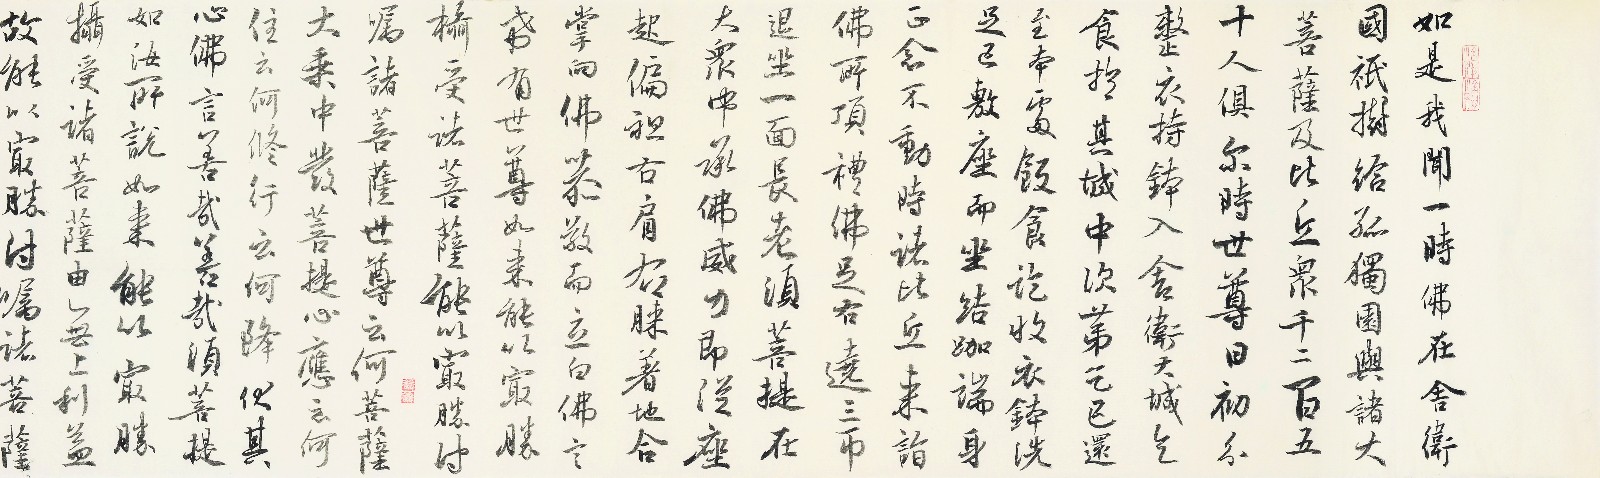 如是我聞一時佛在舍衛
國祇樹給孤獨園與諸大
菩薩及比丘眾千二百五
十人俱尔時世尊日初分
整衣持鉢入舍衛大城乞
食於其城中次第乞已還
至本處飯食訖收衣鉢洗
足已敷座而坐結跏端身
正念不動時諸比丘來詣
佛所頂禮佛足右遶三帀
退坐一面長老須菩提在
大眾中承佛威力即從座
起偏袒右肩右膝著地合
掌向佛恭敬而立白佛言
希有世尊如來能以最勝
攝受諸菩薩能以最勝付
囑諸菩薩世尊云何菩薩
大乘中發菩提心應云何
住云何修行云何降伏其
心佛言善哉善哉須菩提
如汝所說如來能以最勝
攝受諸菩薩由以無上利益
故能以最勝付囑諸菩薩